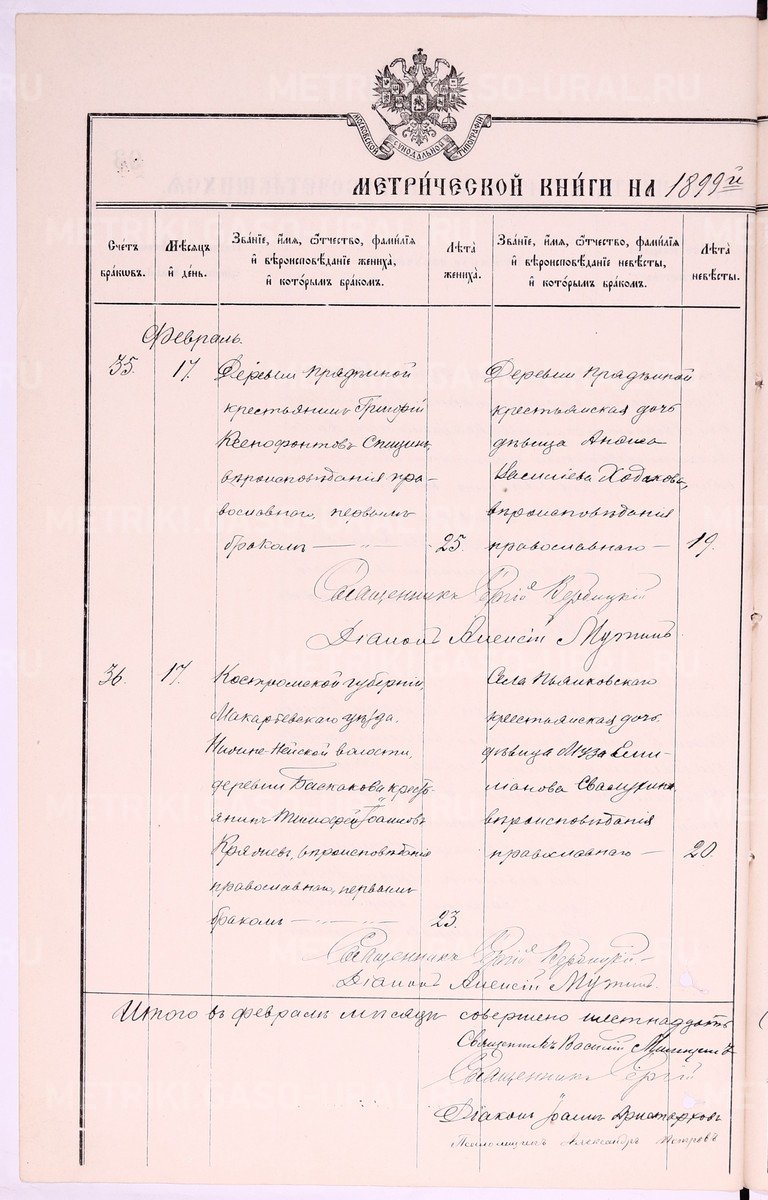 МОСКОВСКОЙ СѴНОДАЛЬНОЙ ТИПОГРАФІИ
МЕТРИ́ЧЕСКОЙ КНИ́ГИ НА 1899й
Сче́тъ бра́кивъ.
Мѣ́сяцъ й де́нь.
Зва́нїе, и́мя, ѻ́тчество, фами́лїя
й вѣроисповѣ́данїе жениха̀,
й кото́рымъ бра́комъ.
Лѣта̀ жениха̀.
Зва́нїе, и́мя, ѻ́тчество, фами́лїя
й вѣроисповѣ́данїе невѣ́сты,
й кото́рымъ бра́комъ.
Лѣта̀ невѣ́сты.
Февраль.
35. 17.
Деревни
крестьянинъ Григорій
Ксенофонтовъ Спицинъ,
вѣроисповѣданія пра-
вославнаго, первымъ
бракомъ — 25.
Деревни
крестьянская дочь
дѣвица Анна
Василіева Ходакова,
вѣроисповѣданія
православнаго — 19.
Священникъ Сергій Вербицкій
Діаконъ Алексій
36. 17.
Костромской губерніи,
Макарьевскаго уѣзда,
волости,
деревни Баскакова кресть-
янинъ Тимофей Іоанновъ
вѣроисповѣданія
православнаго, первымъ
бракомъ — 23.
Села
крестьянская дочь
дѣвица Муза Еми-
ліанова
вѣроисповѣданія
православнаго — 20.
Священникъ Сергій Вербицкій
Діаконъ Алексій
Итого въ февралѣ мѣсяцѣ совершено шестнадцать
Священникъ Василій
Священникъ Сергій
Діаконъ Іоаннъ Аристарховъ
Псаломщикъ Александръ Петровъ